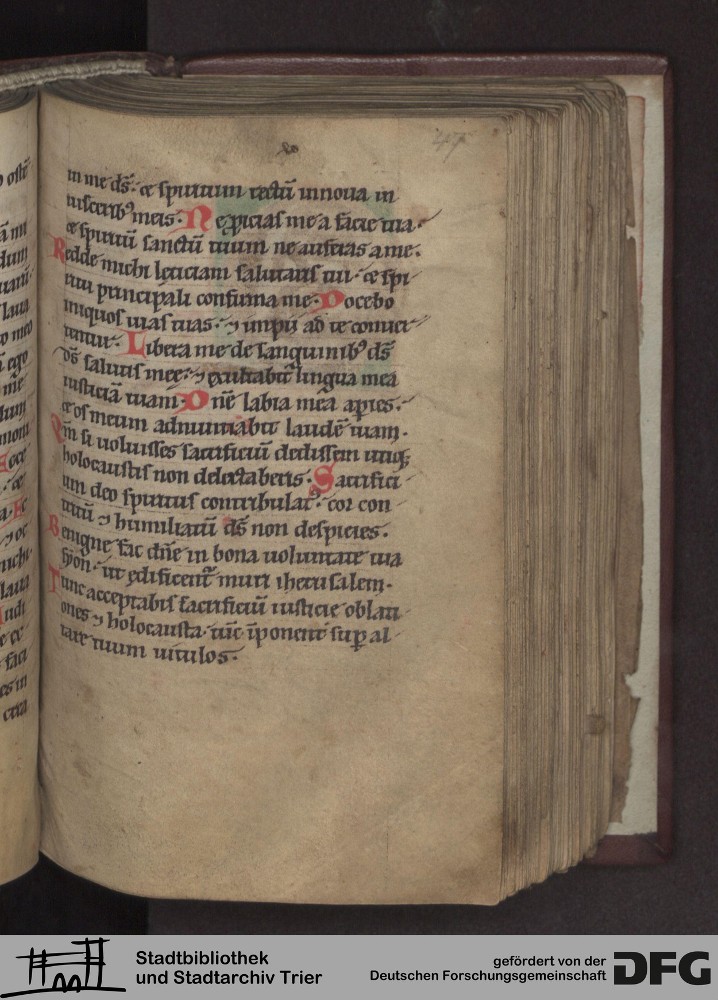 47
in me ds̄. et spiritum rectū innoua in
uiscerib; meis. Ne ꝓicias me a facie tua.
et spiritū sanctū tuum ne auferas a me.
Redde michi leticiam salutaris tui. et spi
ritu principali confirma me. Docebo
iniquos uias tuas. ⁊ impii ad te conuer
tentur. Libera me de sanguinib; ds̄
ds̄ salutis mee. ⁊ exultabit̄ lingua mea
iusticiā tuam. Dn̄e labia mea aperies.
et os meum adnuntiabit laudē tuam.
Qm̄ si uoluisses sacrificiū dedissem utiq;
holocaustis non delectaberis. Sacrifici
um deo spiritus contribulat᷒. cor con
tritū ⁊ humiliatū ds̄ non despicies.
Benigne fac dn̄e in bona uoluntate tua
syon. ut edificent᷑ muri iherusalem.
Tunc acceptabis sacrificiū iusticie oblati
ones ⁊ holocausta. tūc īponent sup̄ al
tare tuum uitulos.
o ostē
lūm
lauа
o meo
ā ego
mē
tum
Ecce
nichi.
laua
Andi
e et
faci
es in
Stadtbibliothek
und Stadtarchiv Trier
gefördert von der
Deutschen Forschungsgemeinschaft
DFG